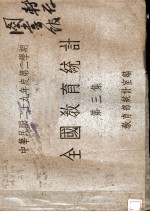 中華民國二十九年度第二學期
全國教育統計
第三集
教育部統計室編